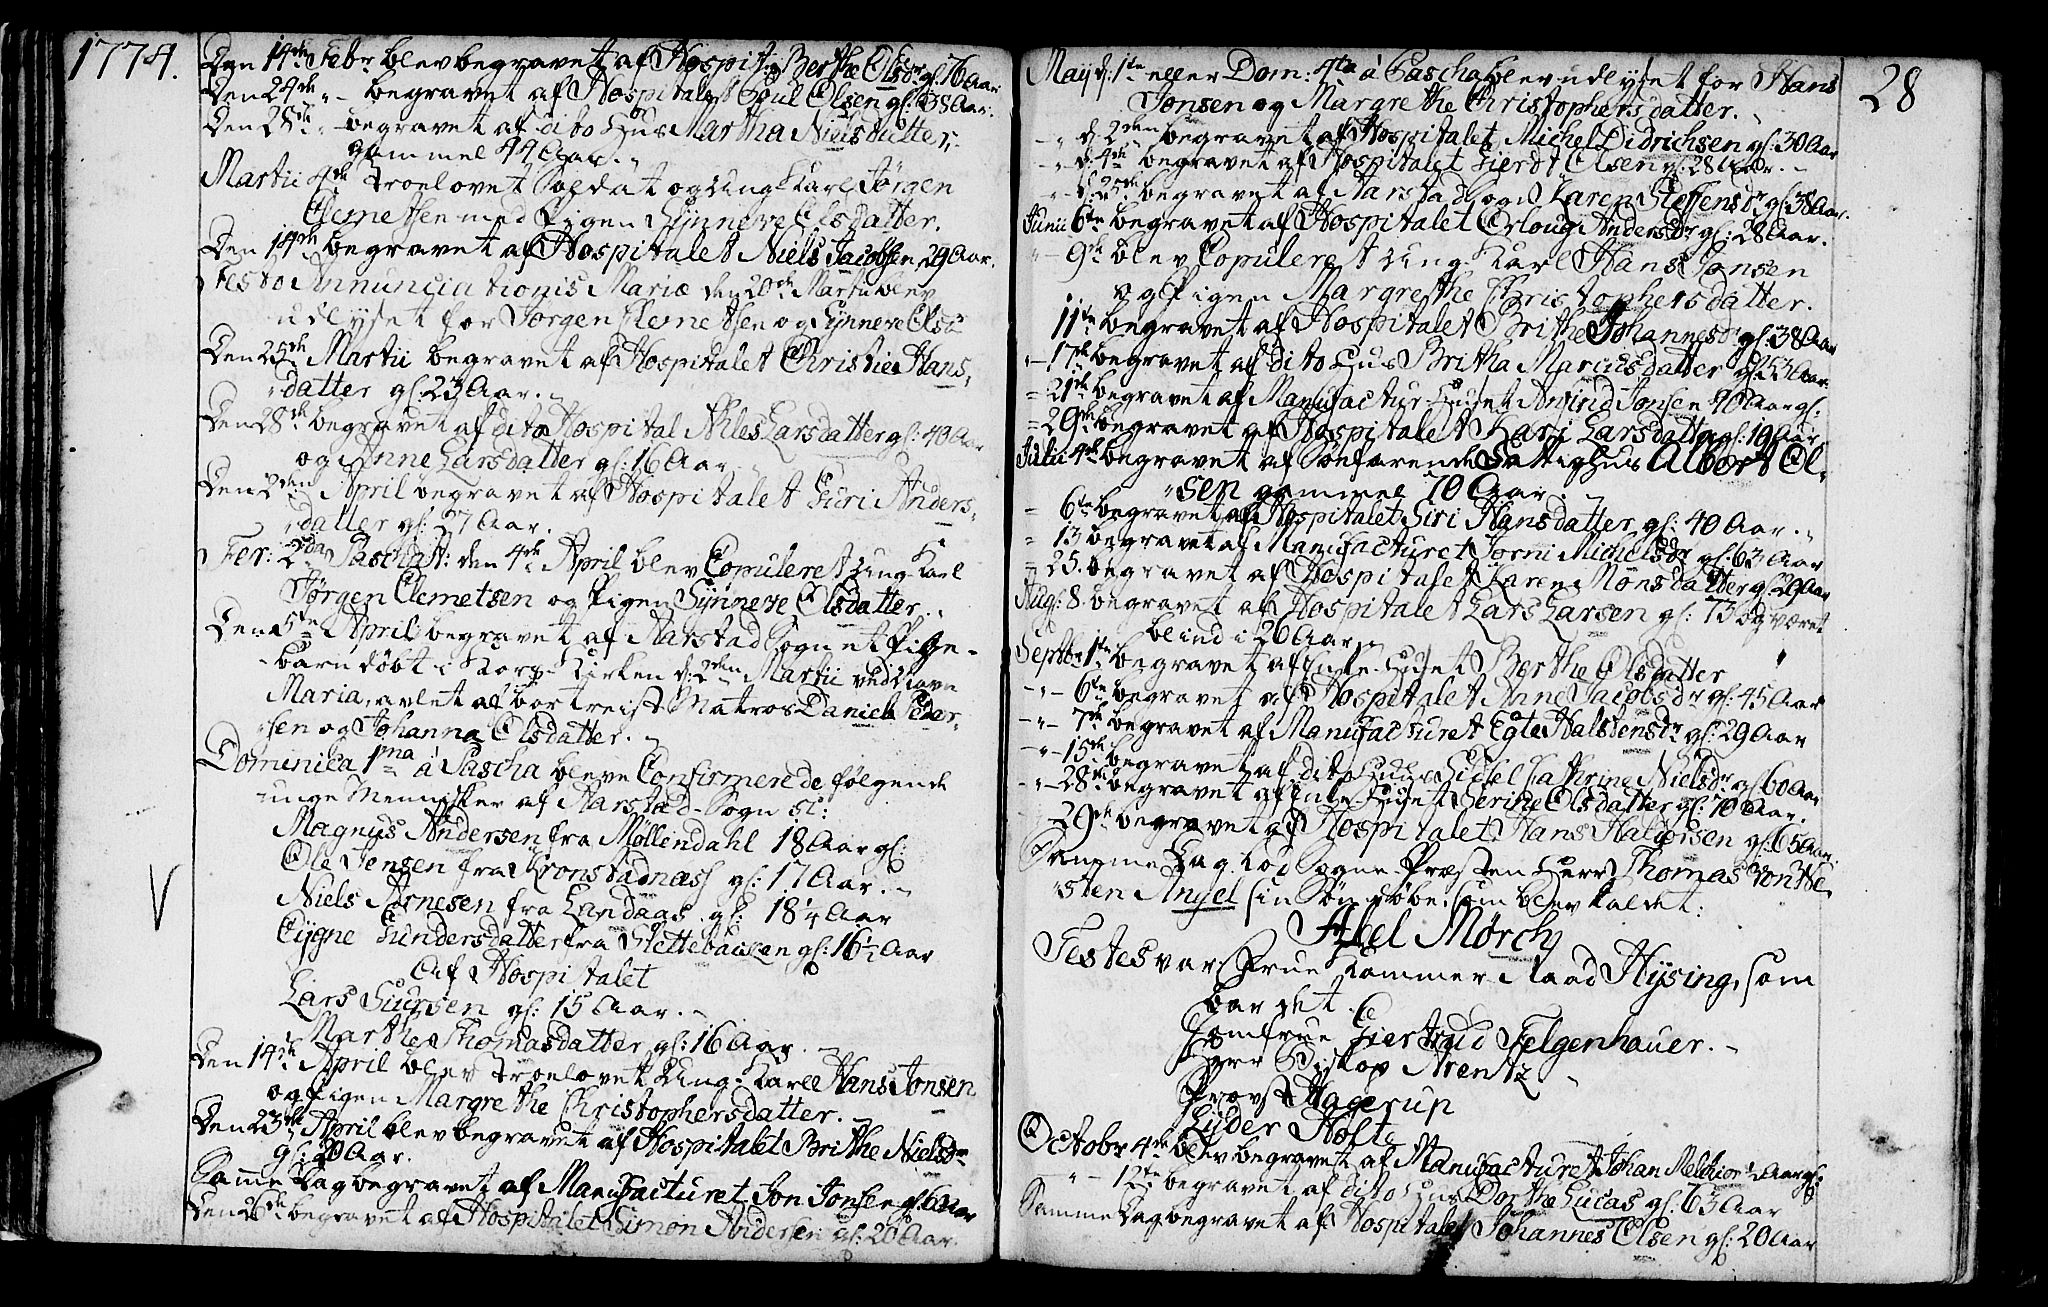 1774.
Den 14de Febr blev begravet af Hospit: Berthe Olsdr gl: 76 Aar
Den 24de „ - begravet af Hospitalet Poul Olsen gl: 38 Aar.
Den 28de „ - begravet af dito Huus Martha Nielsdatter,
gammel 44 Aar. „
Martii 4de Troelovet Soldat og ung Karl Jørgen
Clemetsen med Pigen Synneve Olsdatter.
Den 14de begravet af Hospitalet Niels Jacobsen 29 Aar.
Festo Annunciationis Mariæ den 20de Martii blev
udlyset for Jørgen Clemetsen og Synneve Olsd
Den 25de Martii begravet af Hospitalet Christie Hans,
„datter gl: 23 Aar. „
Den 28de begravet af dito Hospital Niles Larsdatter gl: 40 Aar
og Anne Larsdatter gl: 16 Aar
Den 2den April begravet af Hospitalet Guri Anders„
„datter gl: 27 Aar.
Fer: 2da Pasch: den 4de April blev Copuleret ung Karl
Jørgen Clemetsen og Pigen Synneve Olsdatter. „
Den 5te April begravet af Aarstad Sogn et Pige-
barn døbt i Kors-Kirken d: 2den Martii ved Navn
Maria, avlet af bortreist Matros Daniel Peder-
„sen og Johanna Olsdatter. „
Dominica 1ma á Pascha bleve Confirmerede følgende
unge Mennisker af Aarstad-Sogn sc:
Magnus Andersen fra Møllendahl 18 Aar gl:
Ole Jensen fra Kronstadnæss gl: 17 Aar. „
Niels Arnesen fra Landaas gl: 18 1/4 Aar
Eygne Gundersdatter fra Slettebacken gl: 16 1/2 Aar
Af Hospitalet
Lars Siursen gl: 15 Aar. „
Marthe Thomasdatter gl: 16 Aar. „
Den 14de April blev Troelovet Ung-Karl Hans Jonsen
og Pigen Margrethe Christophersdatter. „
Den 23de April blev begravet af Hospitalet Brithe Nielsdr
gl: 20 Aar.
Same Dag begravet af Manufacturet Jon Jonsen gl: Aar
Den 26de begravet af Hospitalet Simon Andersen gl: 20 Aar.
28
Maij d: 1te eller Dom: 4ta á Pascha blev udlyset for Hans
Jonsen og Margrethe Christophersdatter. „
- „ d. 2den begravet af Hospitalet Michel Didrichsen gl: 30 Aar
- „ d. 4de begravet af Hospitalet Siert Olsen gl: 28 Aar. „
- „ d. 25de begravet af Aarstad Sogn Karen Steffensdr gl: 38 Aar.
Junii 6te begravet af Hospitalet Orloug Andersdr gl: 28 Aar.
„ - 9de blev Copuleret ung Karl Hans Jonsen
og Pigen Margrethe Christophersdatter.
11te begravet af Hospitalet Brithe Johannesdr gl: 38 Aar
„ - 17de begravet af dito Huus Britha Marcusdatter gl: 53 Aar.
= 21de begravet af Manufactur-Huset Anfind Jonsen 40 Aar gl:
= 29de begravet af Hospitalet Kari Larsdatter gl: 19 Aar
Julii 4de begravet af Søefarende Fattighuus Albert Ol-
„sen gammel 70 Aar. „
- 6te begravet af Hospitalet Siri Hansdatter gl: 40 Aar. „
= 13 begravet af Manufacturet Jorni Michelsdr gl: 63 Aar
= 25. begravet af Hospitalet Karen Monsdatter gl: 29 Aar
Aug: 8. begravet af Hospitalet Lars Larsen gl: 73 og været
blind i 26 Aar.
Septbr 1te begravet af Enke-Huset Berthe Olsdatter „
- „ - 6te begravet af Hospitalet Anne Jacobsdr gl: 45 Aar
- „ - 7de begravet af Manufacturet Egte Halstensdr gl: 29 Aar
- „ - 15de begravet af dito Huus Sidsel Cathrine Nielsdr gl: 60 Aar
- „ - 28de begravet af Enke-Huset Serine Olsdatter gl: 70 Aar.
29de begravet af Hospitalet Hans Halvorsen gl: 65 Aar.
Samme Dag lod Sogne-Præsten Herr Thomas von We-
„sten Angel sin Søn døbe, som blev kaldet:
Abel Mørch
Testes var Frue Kammer-Raad Hysing, som
bar det.
Jomfrue Giertrud Felgenhauer. „
Herr Biskop Arentz „
Provst Hagerup
Lyder Hofte
Octobr 4de blev begravet af Manufacturet Johan Melchior 1/2 Aar gl:
„ - 12te begravet af dito Huus Dorthe Lucas gl: 63 Aar
Samme Dag begravet af Hospitalet Johannes Olsen gl: 20 Aar